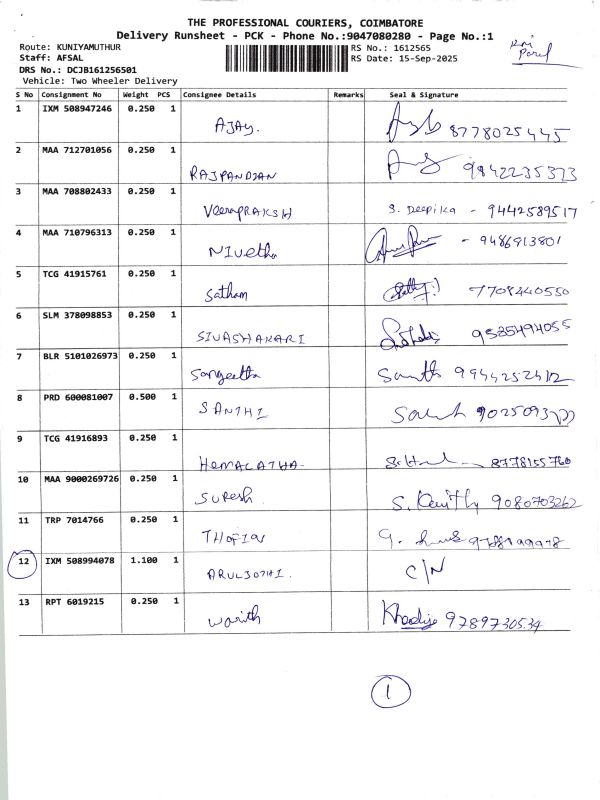 THE PROFESSIONAL COURIERS, COIMBATORE
Delivery Runsheet - PCK - Phone No.:9047080280 - Page No.:1
Route: KUNIYAMUTHUR RS No.: 1612565
Staff: AFSAL RS Date: 15-Sep-2025
DRS No.: DCJB161256501
Vehicle: Two Wheeler Delivery
S No Consignment No Weight PCS Consignee Details Remarks Seal & Signature
1 IXM 508947246 0.250 1 AJAY. 8778025445
2 MAA 712701056 0.250 1 RAJPANDIAN 9842235373
3 MAA 708802433 0.250 1 VeeraPRAKSH S. Deepika - 9442589517
4 MAA 710796313 0.250 1 Nivetha - 9486913801
5 TCG 41915761 0.250 1 Satham 7708440550
6 SLM 378098853 0.250 1 SIVASHAKARI 9585494055
7 BLR 5101026973 0.250 1 Sangeetha 9944252412
8 PRD 600081007 0.500 1 SANTHI
9 TCG 41916893 0.250 1 HEMALATHA. 8778155760
10 MAA 9000269726 0.250 1 SURESH. 9080703262
11 TRP 7014766 0.250 1 THOFIQ
12 IXM 508994078 1.100 1 ARULJOTHI. C/N
13 RPT 6019215 0.250 1 Warith 9789730534
1